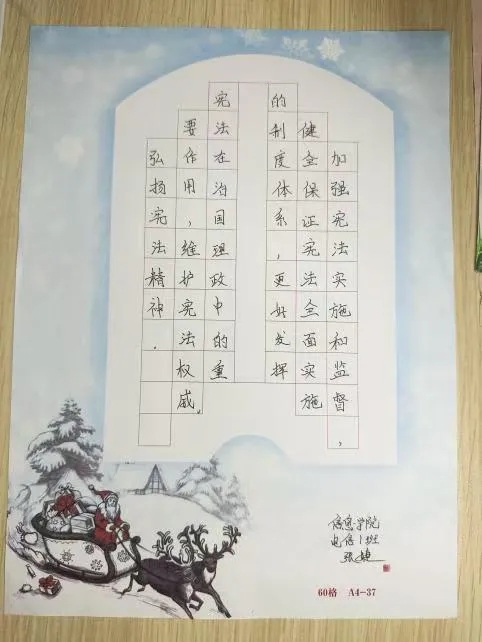 加强宪法实施和监督，
健全保证宪法全面实施
的制度体系，更好发挥
宪法在治国理政中的重
要作用，维护宪法权威。
弘扬宪法精神.
信息学院
电信1班
张婕
60格 A4-37